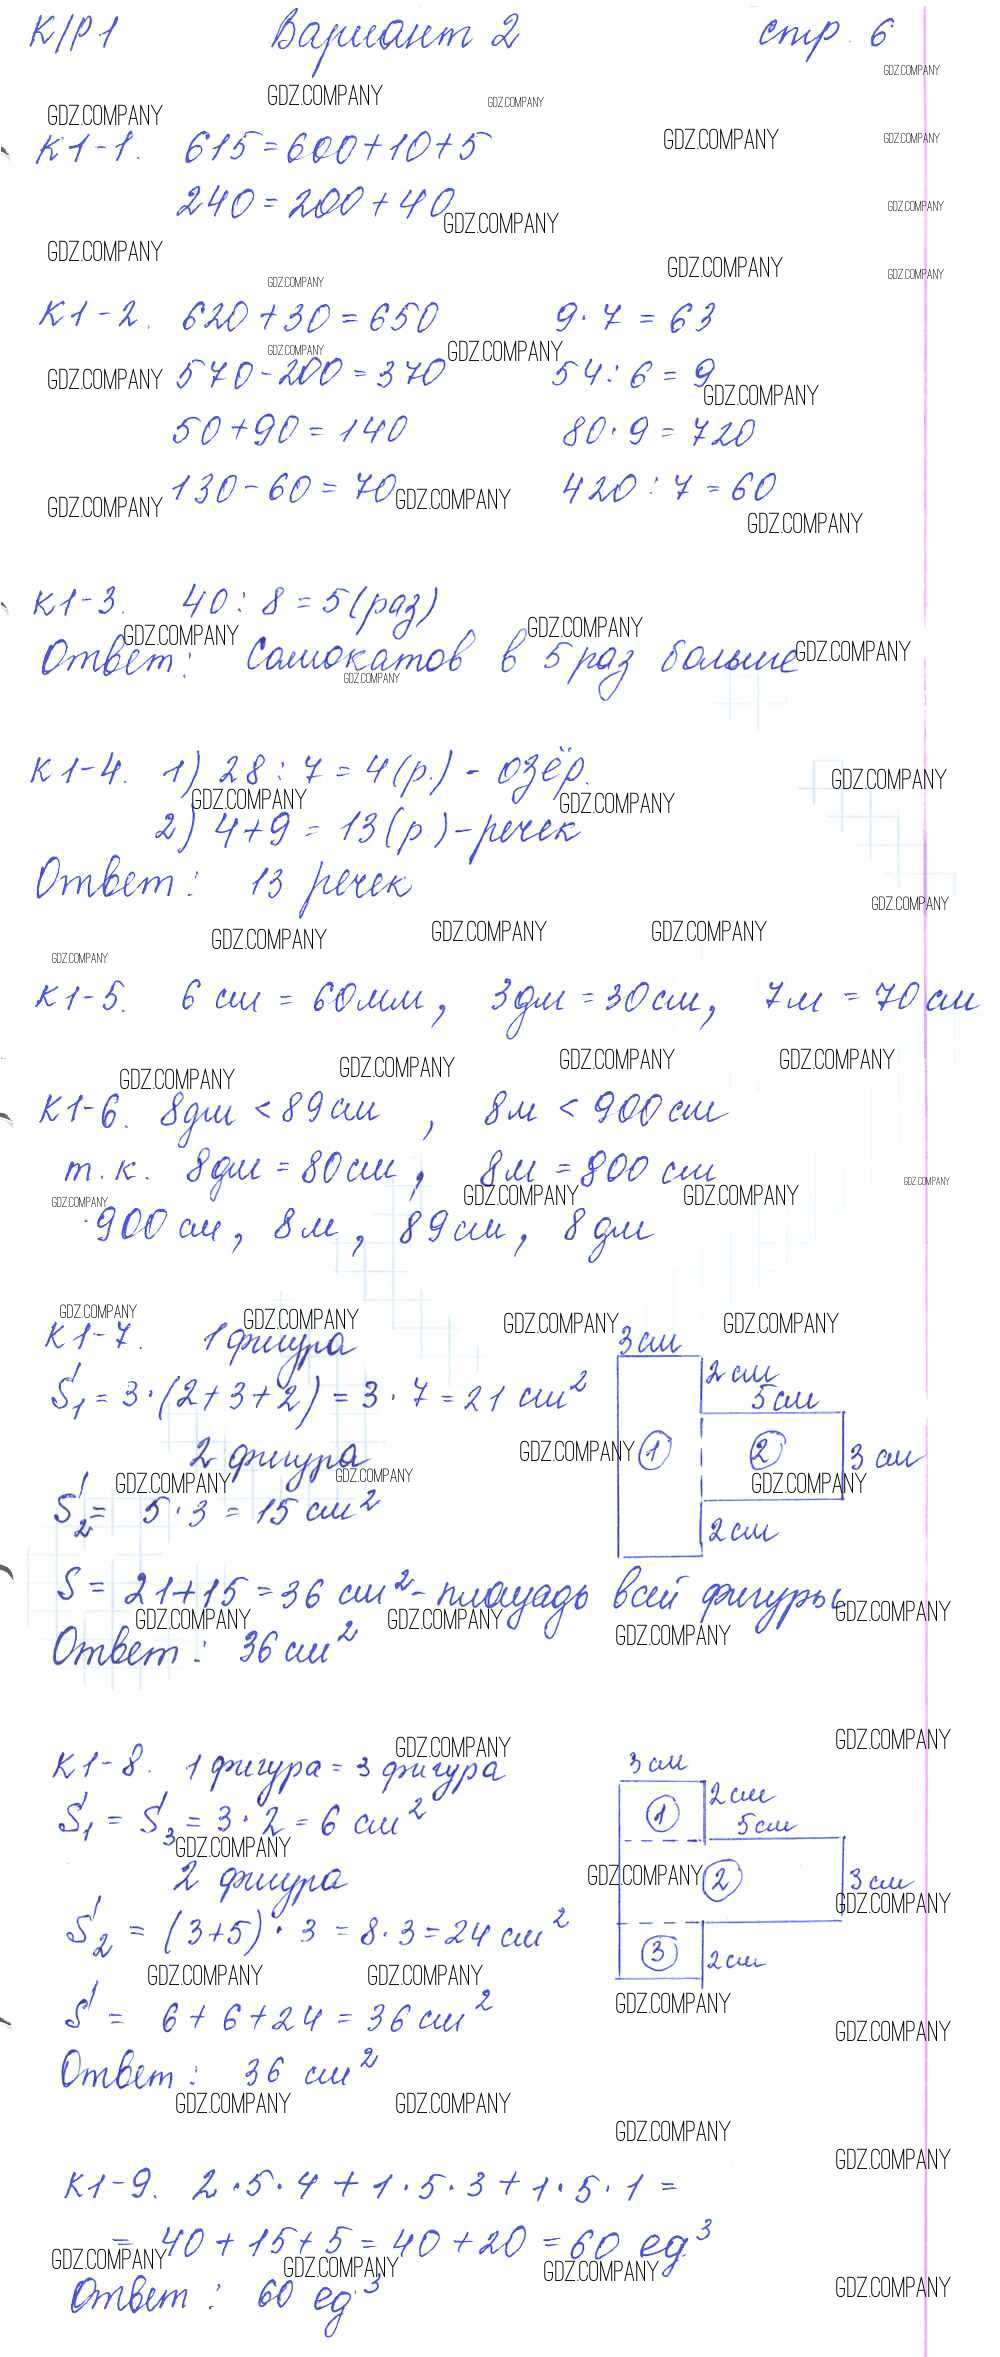 К/Р 1 Вариант 2 стр. 6
К1-1. 615 = 600 + 10 + 5
240 = 200 + 40
К1-2. 620 + 30 = 650 9 · 7 = 63
570 - 200 = 370 54 : 6 = 9
50 + 90 = 140 80 · 9 = 720
130 - 60 = 70 420 : 7 = 60
К1-3. 40 : 8 = 5 (раз)
Ответ: Самокатов в 5 раз больше
К1-4. 1) 28 : 7 = 4 (р.) - озёр.
2) 4 + 9 = 13 (р) - речек
Ответ: 13 речек
К1-5. 6 см = 60 мм, 3 дм = 30 см, 7 м = 70 см
К1-6. 8 дм < 89 см, 8 м < 900 см
т.к. 8 дм = 80 см, 8 м = 800 см
900 см, 8 м, 89 см, 8 дм
К1-7. 1 фигура
S₁ = 3 · (2 + 3 + 2) = 3 · 7 = 21 см²
2 фигура
S₂ = 5 · 3 = 15 см²
3 см
2 см
5 см
1 2 3 см
2 см
S = 21 + 15 = 36 см² - площадь всей фигуры
Ответ: 36 см²
К1-8. 1 фигура = 3 фигура
S₁ = S₃ = 3 · 2 = 6 см²
2 фигура
S₂ = (3 + 5) · 3 = 8 · 3 = 24 см²
3 см
1 2 см
5 см
2 3 см
3 2 см
S = 6 + 6 + 24 = 36 см²
Ответ: 36 см²
К1-9. 2 · 5 · 4 + 1 · 5 · 3 + 1 · 5 · 1 =
= 40 + 15 + 5 = 40 + 20 = 60 ед.³
Ответ: 60 ед.³
GDZ.COMPANY